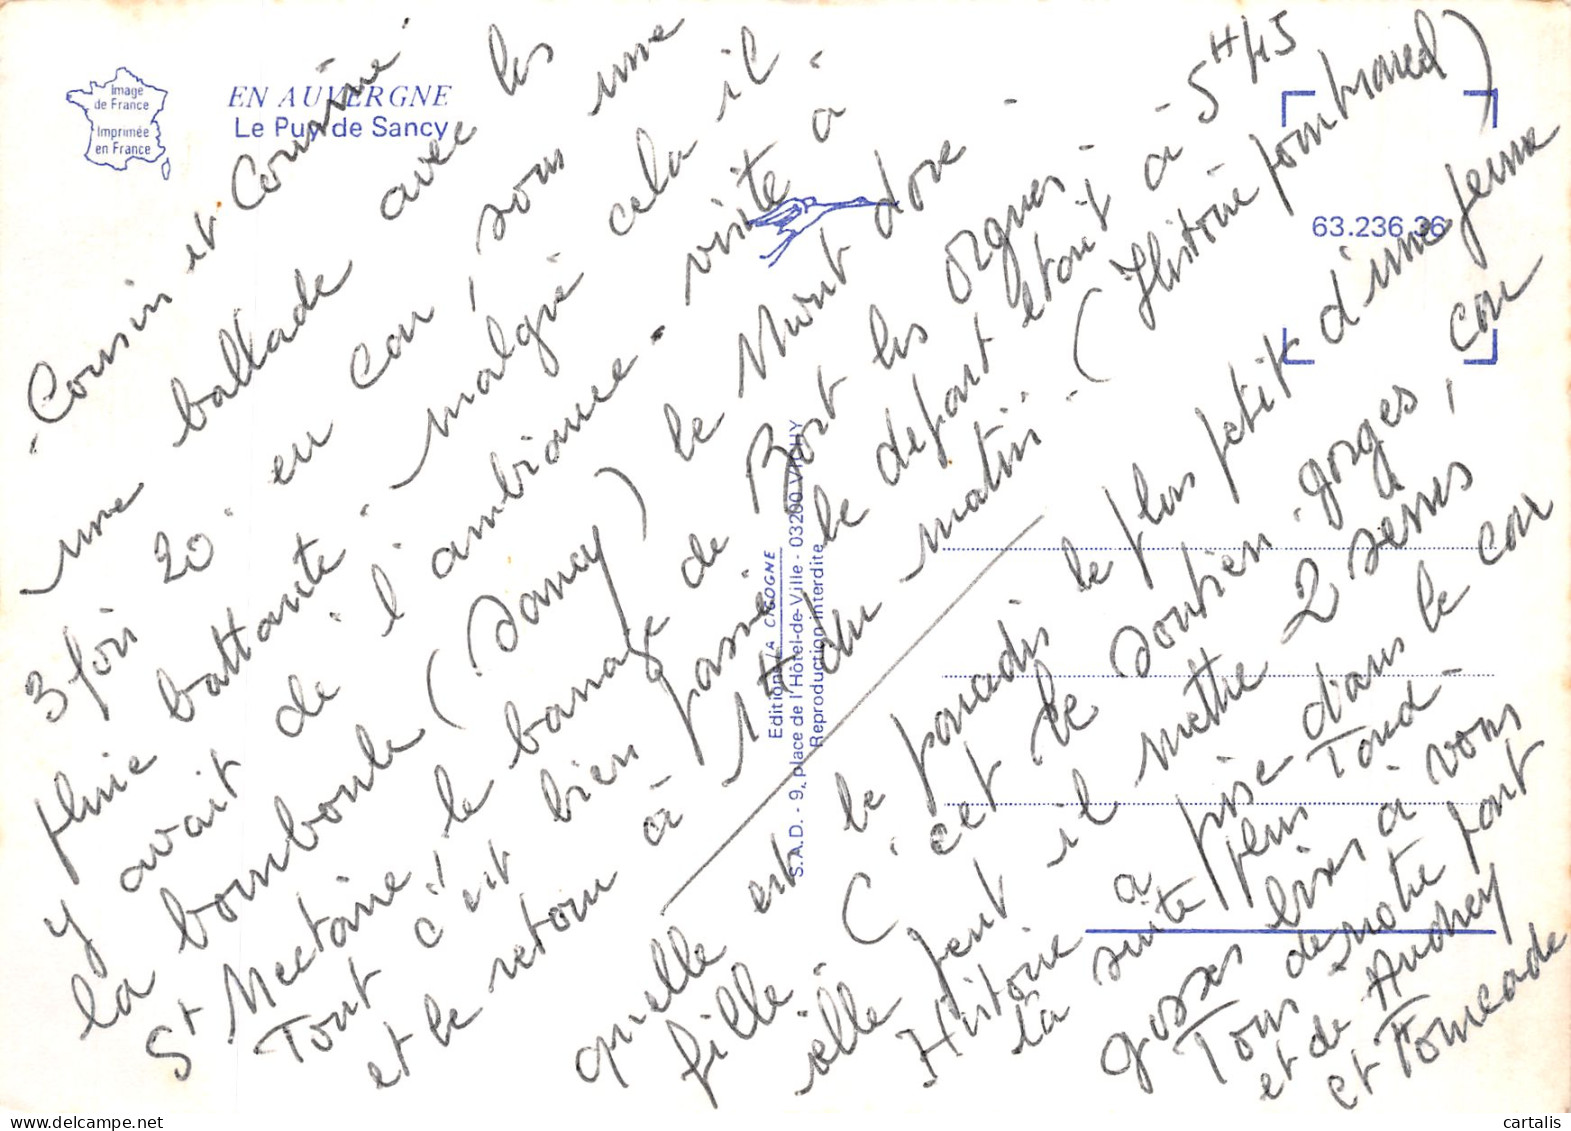 Image
de France
Imprimée
en France
EN AUVERGNE
Le Puy de Sancy
63.236.36
Editions LA CIGOGNE
S.A.D. - 9, place de l'Hôtel-de-Ville - 03200 VICHY
Reproduction interdite
Cousin et Cousine
une ballade avec les
3 fois 20 en car, sous une
pluie battante. malgré cela il
y avait de l'ambiance. visite à
la bourboule (Sancy) le Mont dore.
St Nectaire, le barrage de Bort les orgues.
Tout c'est bien passé le depart etait à 5H45
et le retour à 1H du matin. (Histoire
quelle est le paradis le plus petit d'une jeune
fille (c'et le soutien. gorges, car
elle peut il mettre 2 seins
Histoire a prise dans le car
la suite plus Tard-
gosses bises à vous
Tous de notre part
et de Audrey
et Fourcade
cartalis